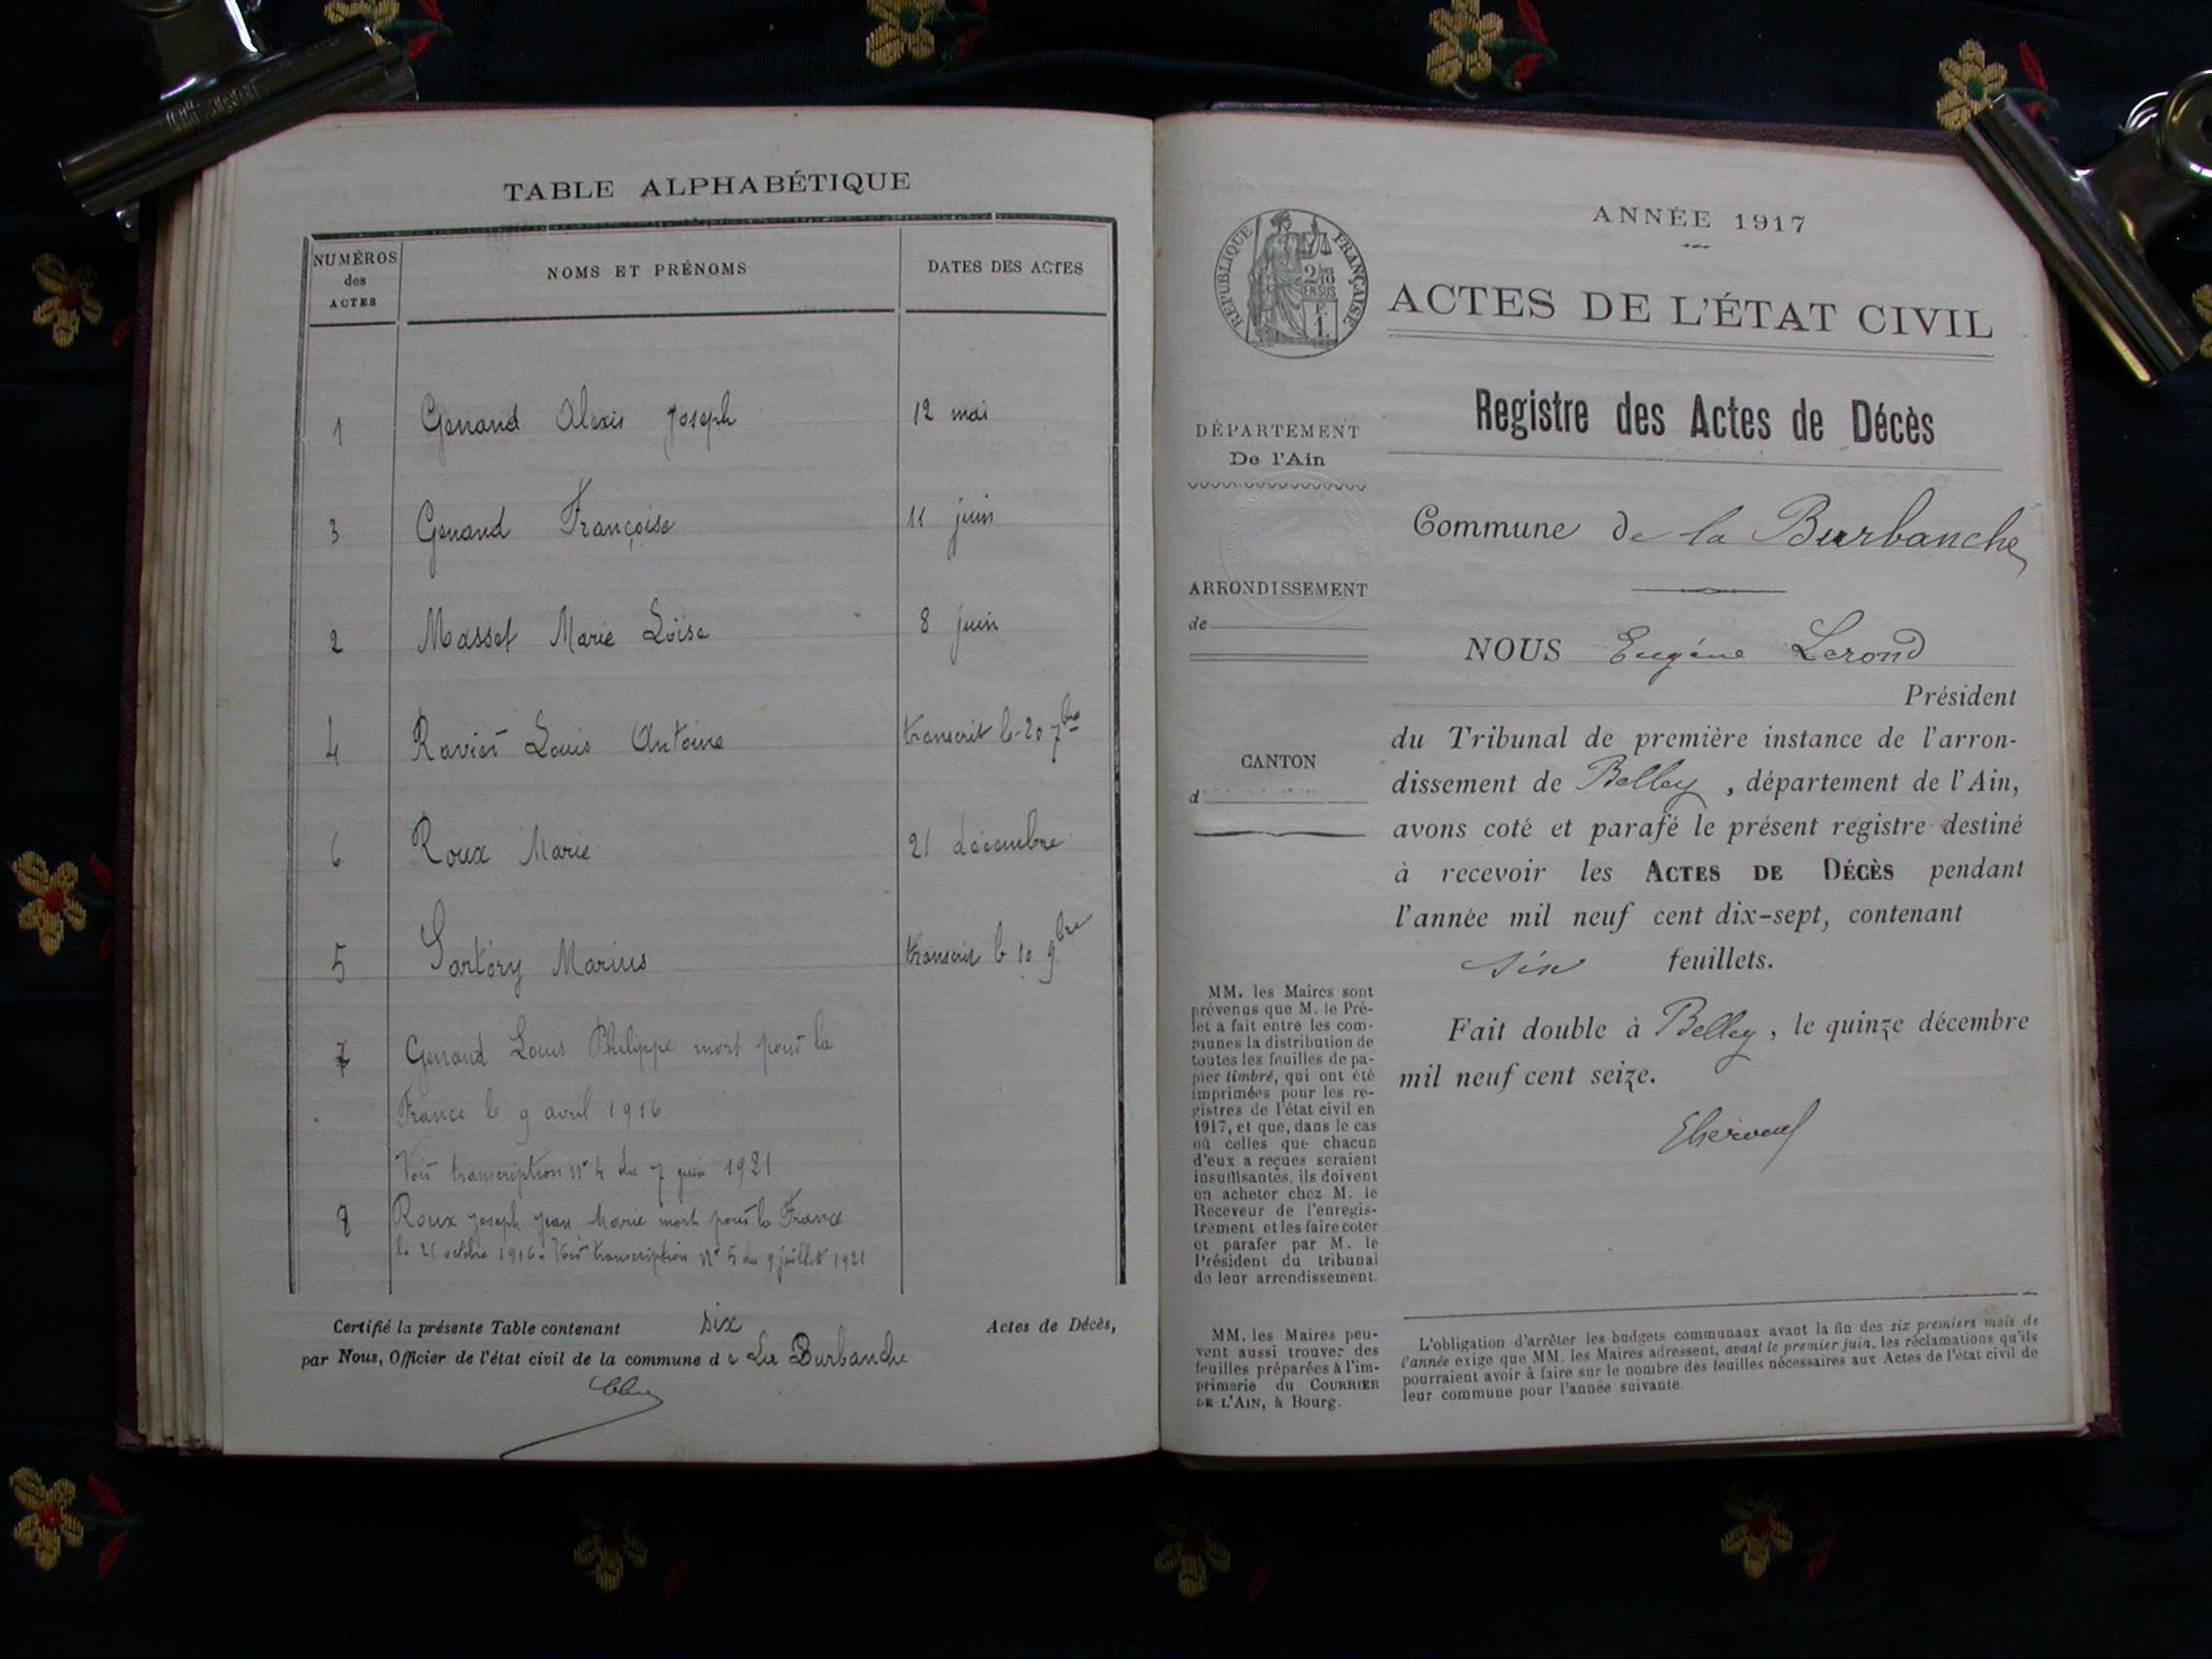 TABLE ALPHABÉTIQUE
NUMÉROS des ACTES
NOMS ET PRÉNOMS
DATES DES ACTES
1 Genand Alexis Joseph 12 mai
3 Genand Françoise 11 juin
2 Masset Marie Loïse 8 juin
4 Ravier Louis Antoine transcrit le 20 7bre
6 Roux Marie 21 décembre
5 Sartory Marius transcrit le 10 9bre
7 Genand Louis Philippe mort pour la
France le 9 avril 1916
Voir transcription N° 4 du 7 juin 1921
8 Roux Joseph Jean Marie mort pour la France
le 21 octobre 1916. Voir transcription N° 5 du 9 juillet 1921
Certifié la présente Table contenant six Actes de Décès,
par Nous, Officier de l'état civil de la commune de La Burbanche
ANNÉE 1917
RÉPUBLIQUE FRANÇAISE
2/10
EN SUS
F.
1.
ACTES DE L'ÉTAT CIVIL
Registre des Actes de Décès
DÉPARTEMENT
De l'Ain
Commune de la Burbanche
ARRONDISSEMENT
de
NOUS Eugène Lerond
Président
CANTON
d
du Tribunal de première instance de l'arron-
dissement de Belley, département de l'Ain,
avons coté et parafé le présent registre destiné
à recevoir les ACTES DE DÉCÈS pendant
l'année mil neuf cent dix-sept, contenant
six feuillets.
Fait double à Belley, le quinze décembre
mil neuf cent seize.
MM. les Maires sont
prévenus que M. le Pré-
fet a fait entre les com-
munes la distribution de
toutes les feuilles de pa-
pier timbré, qui ont été
imprimées pour les re-
gistres de l'état civil en
1917, et que, dans le cas
où celles que chacun
d'eux a reçues seraient
insuffisantes, ils doivent
en acheter chez M. le
Receveur de l'enregis-
trement et les faire coter
et parafer par M. le
Président du tribunal
de leur arrondissement.
MM. les Maires peu-
vent aussi trouver des
feuilles préparées à l'im-
primerie du COURRIER
DE L'AIN, à Bourg.
L'obligation d'arrêter les budgets communaux avant la fin des six premiers mois de
l'année exige que MM. les Maires adressent, avant le premier juin, les réclamations qu'ils
pourraient avoir à faire sur le nombre des feuilles nécessaires aux Actes de l'état civil de
leur commune pour l'année suivante.